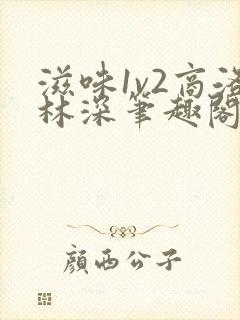 滋味1v2高洛
林深笔趣閣
顏西公子